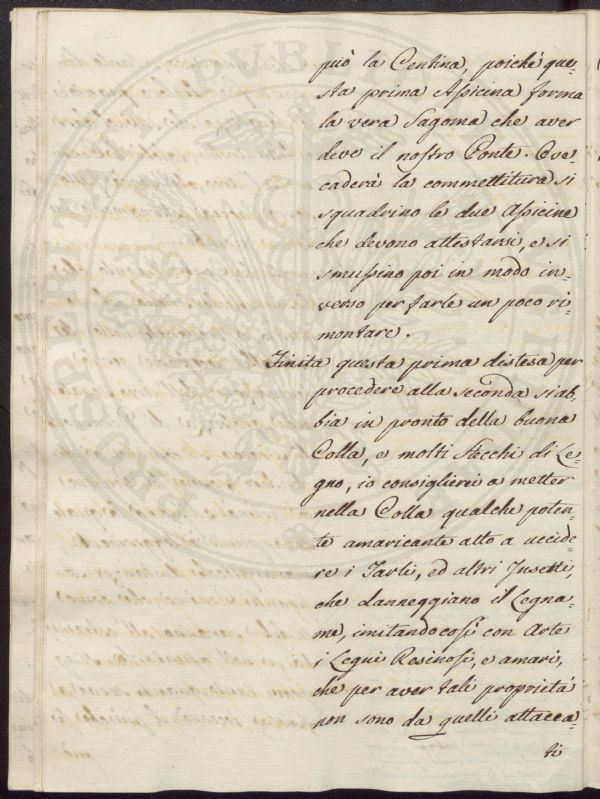 può la Centina, poiché que-
sta prima Assicina forma
la vera Sagoma che aver
deve il nostro Ponte. Ove
caderà la commettitura si
squadrino le due Assicine
che devono attestarsi, e si
smussino poi in modo in-
verso per farle un poco ri-
montare.
Finita questa prima distesa per
procedere alla seconda si ab-
bia in pronto della buona
Colla, e molti Stecchi di Le-
gno, io consiglierei a metter
nella Colla qualche poten-
te amaricante atto a uccide-
re i Tarli, ed altri Insetti,
che danneggiano il Legna-
me, imitando così con Arte
i Legni Resinosi, e amari,
che per aver tali proprietà
non sono da quelli attacca-
ti